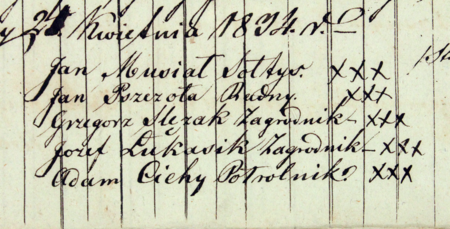 y 24 Kwietnia 1834. r.
Jan Musiał Sołtys. XXX
Jan Pszczoła Radny. XXX
Grzegorz Ślęzak Zagrodnik – XXX
Jozef Łukasik Zagrodnik – XXX
Adam Cichy Połrolnik XXX